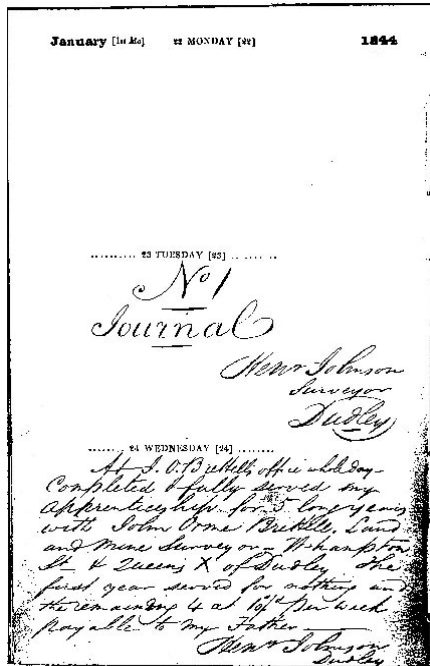 January [1st Mo] 22 MONDAY [22] 1844
.......... 23 TUESDAY [23] ..........
No 1
Journal
Henry Johnson
Surveyor
Dudley
.......... 24 WEDNESDAY [24] ........
At J. O. Brettell's office whole day
Completed & fully served my
apprenticeship for 5 long years
with John Orme Brettell, Land
and Mine Surveyor W-hampton
St & Queens X of Dudley the
first year served for nothing and
the remaining 4 at per week
payable to my Father
Henry Johnson
Dudley